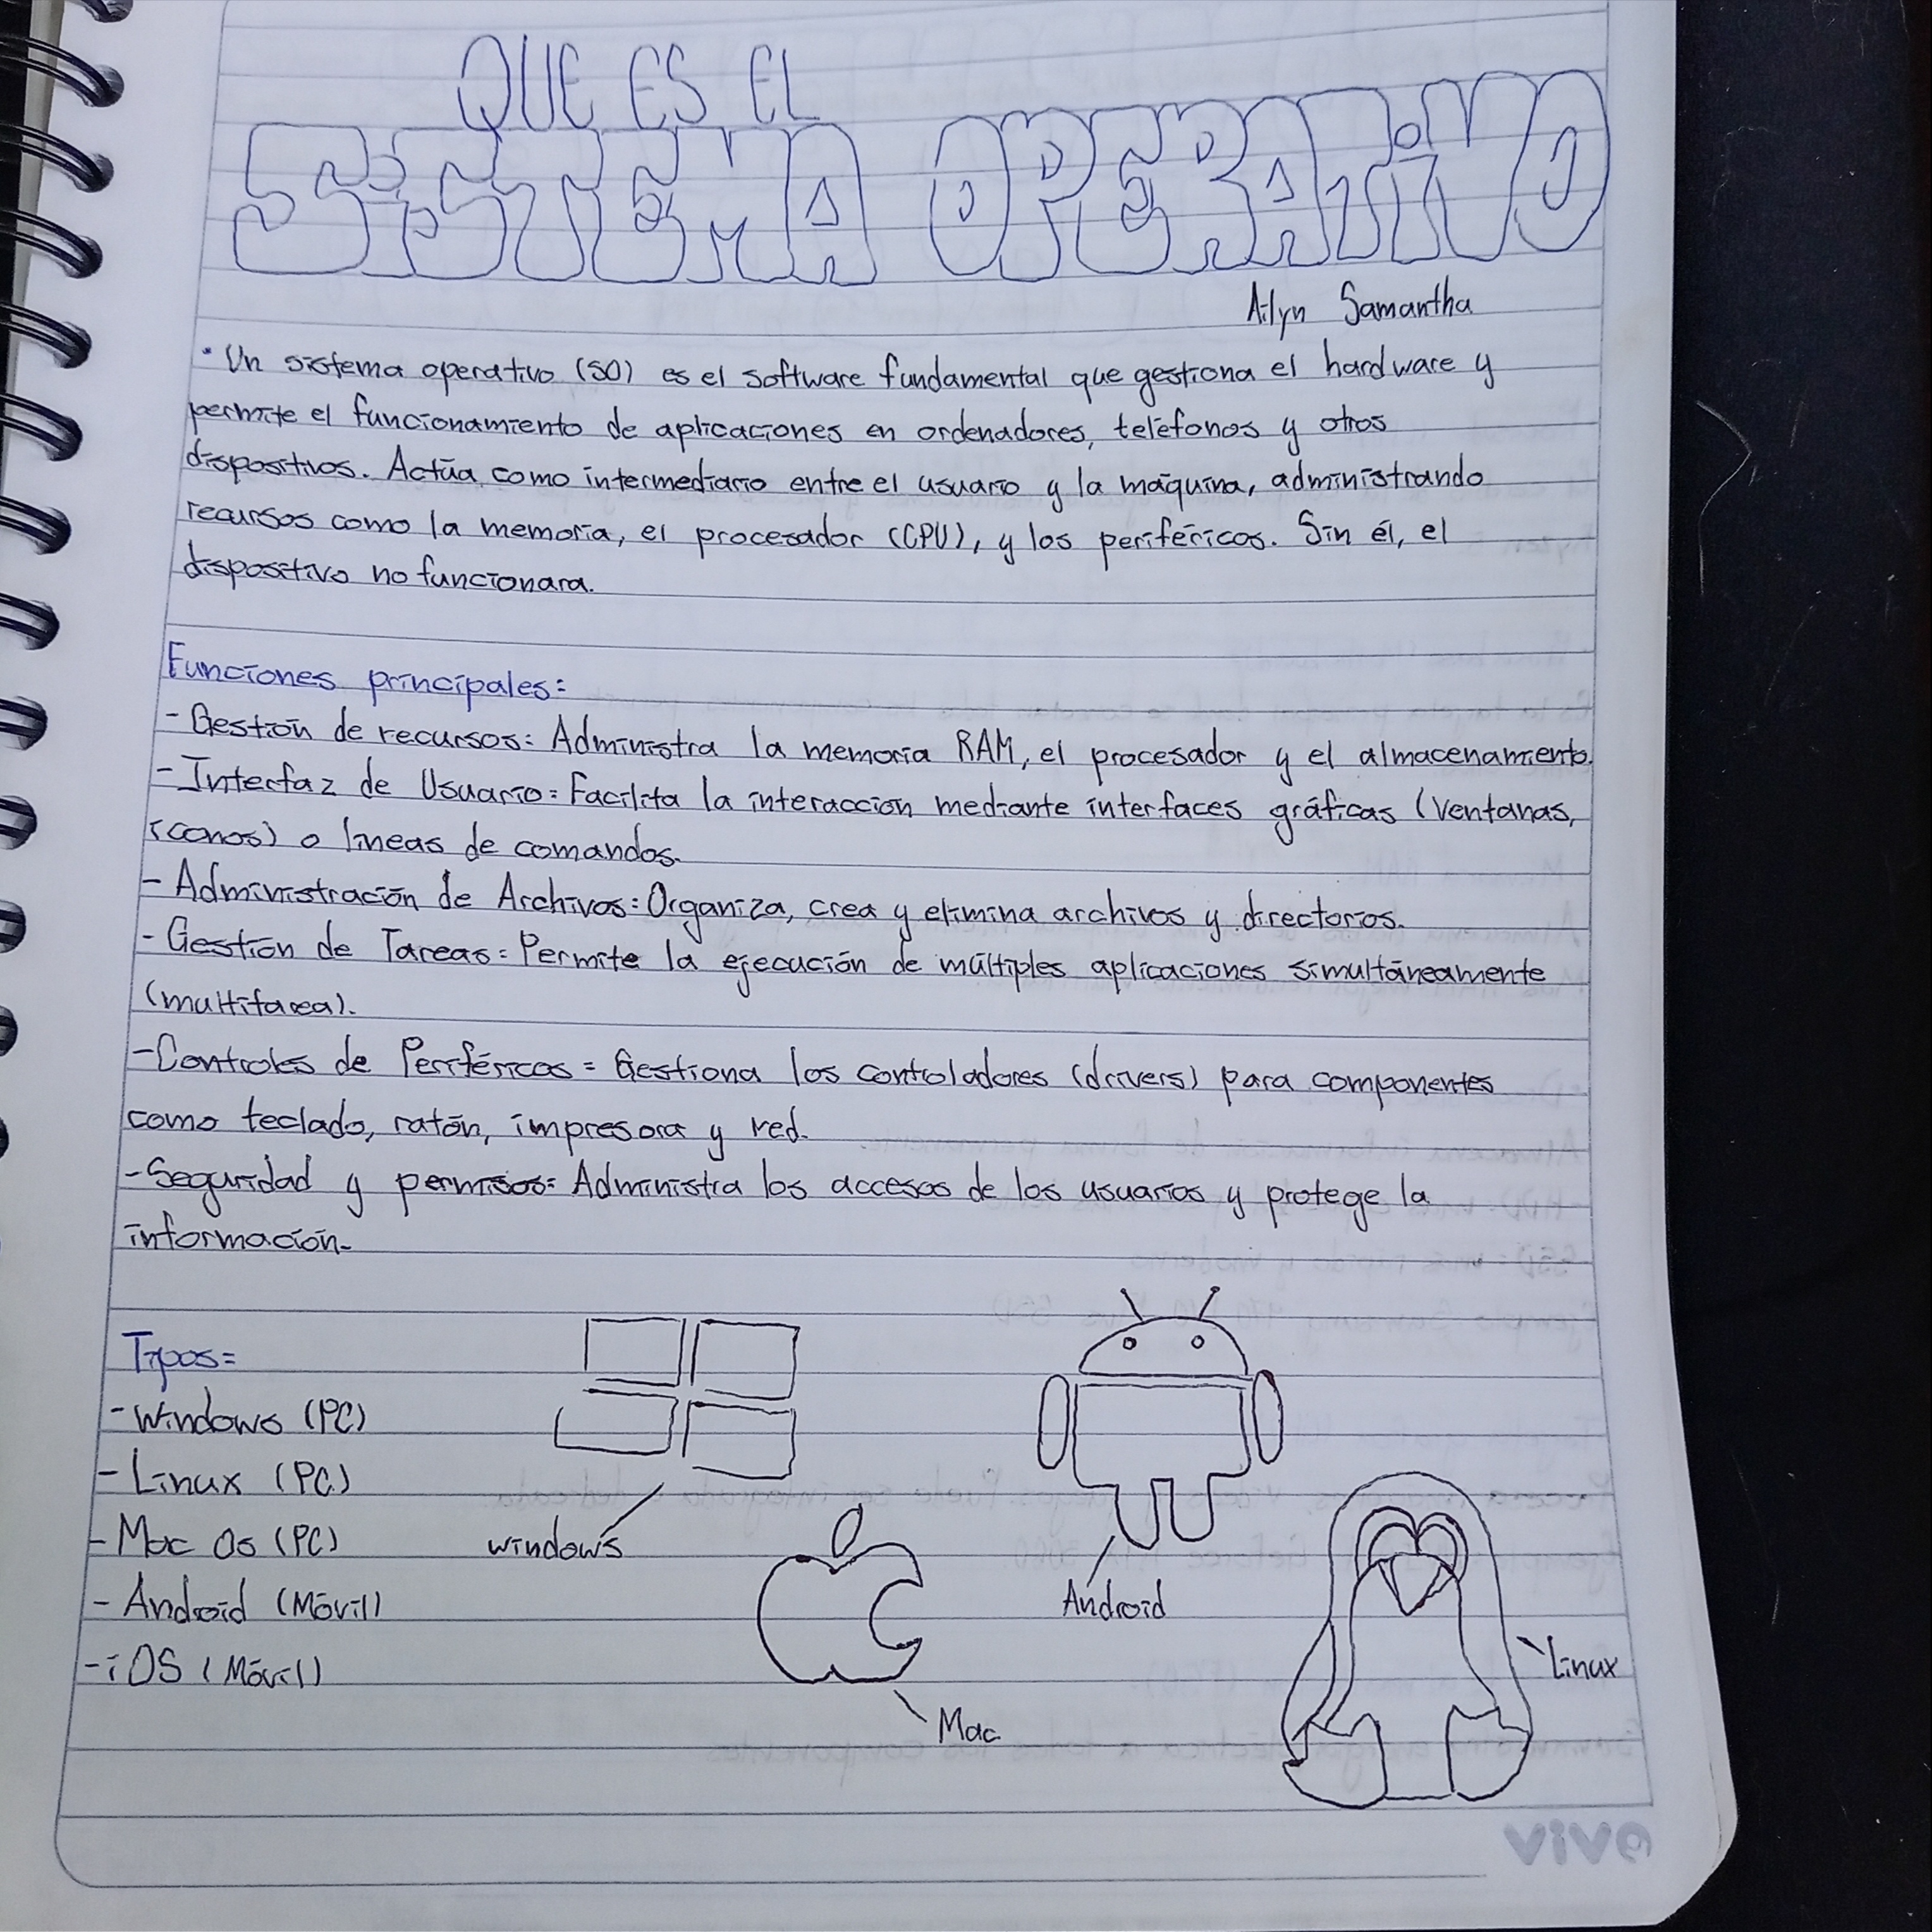 QUE ES EL
SiSTEMA OPERATiVO
Ailyn Samantha
• Un sistema operativo (SO) es el software fundamental que gestiona el hardware y
permite el funcionamiento de aplicaciones en ordenadores, teléfonos y otros
dispositivos. Actúa como intermediario entre el usuario y la máquina, administrando
recursos como la memoria, el procesador (CPU), y los periféricos. Sin él, el
dispositivo no funcionara.
Funciones principales:
- Gestión de recursos: Administra la memoria RAM, el procesador y el almacenamiento.
- Interfaz de Usuario: Facilita la interaccion mediante interfaces gráficas (ventanas,
iconos) o lineas de comandos.
- Administración de Archivos: Organiza, crea y elimina archivos y directorios.
- Gestión de Tareas: Permite la ejecución de múltiples aplicaciones simultáneamente
(multitarea).
- Controles de Periféricos: Gestiona los controladores (drivers) para componentes
como teclado, ratón, impresora y red.
- Seguridad y permisos: Administra los accesos de los usuarios y protege la
información.
Tipos:
- Windows (PC)
- Linux (PC)
- Mac Os (PC)
- Android (Móvil)
- iOS (Móvil)
windows
Android
Linux
Mac